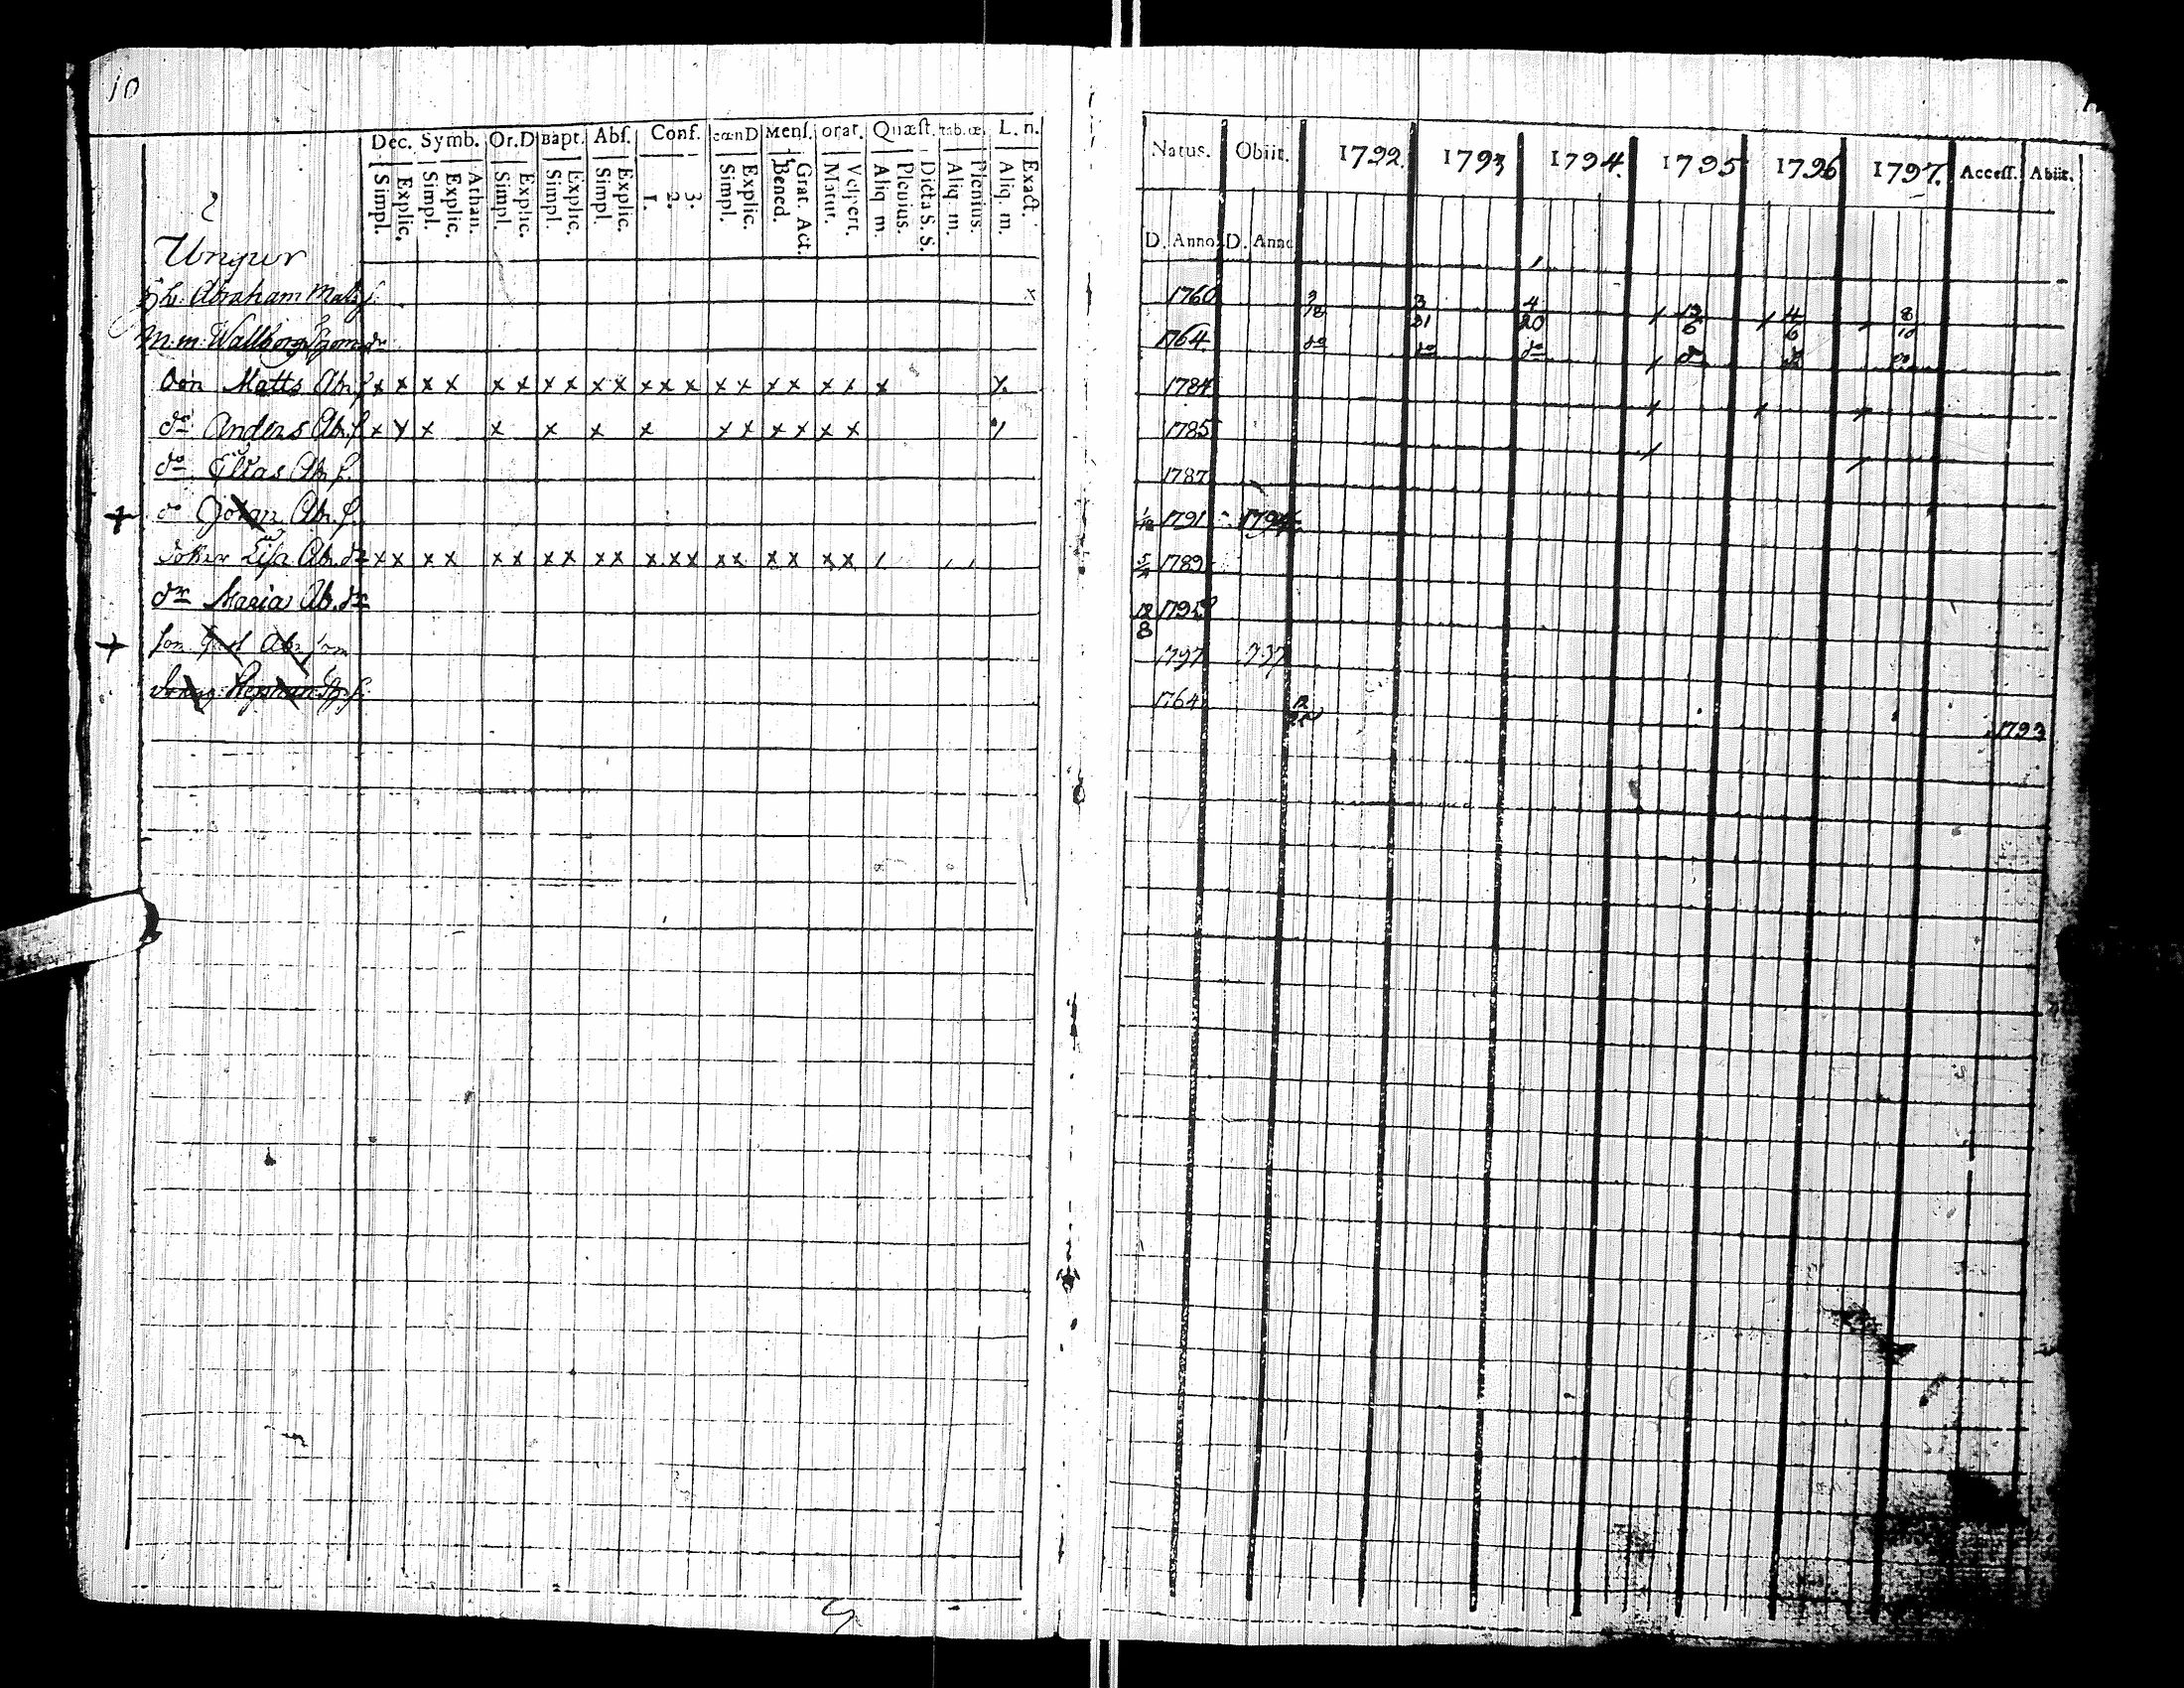 10
Dec. Symb. Or.D Bapt. Abſ. Conf. cœnD Menſ. orat. Quæſt. tab.œ. L. n.
Simpl. Explic. Simpl. Explic. Athan. Simpl. Explic. Simpl. Explic. Simpl. Explic. 1. 2. 3. Simpl. Explic. Bened. Grat. Act. Matut. Veſpert. Aliq. m. Plenius. Dicta S. S. Aliq. m. Plenius. Aliq. m. Exact.
2
Ungur
Abraham Matsſ. x
M.m. Wallborg
Son Matts Ab.ſ x x x x x x x x x x x x x x x x x x x x x
do Anders Ab.ſ x x x x x x x x x x x x x
do Elias Ab.ſ.
+ do Göran Ab.ſ.
Doter Liſa Ab.dr x x x x x x x x x x x x x x x x x x x
dr Maria Ab.dr
+ ſon
Natus. Obiit. 1792. 1793 1794. 1795 1796 1797. Acceſſ. Abiit.
D. Anno. D. Anno
1760 3/18 3/21 4/20 13/6 4/6 8/10
1764 do do do do do do
1784
1785
1787
1791 1794
1789
18/8 1795
1797 797
1764 1793